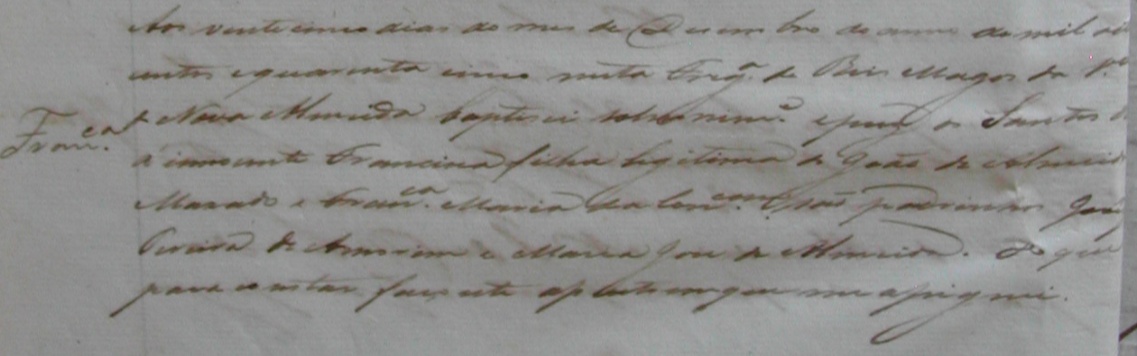 Aos vinte cinco dias do mes de Desembro do anno de mil oito
centos e quarenta cinco nesta Freg.ª de Reis Magos da V.ª
Fran.ca de Nova Almeida baptisei solennem.e e puz os Santos
a innocente Francisca filha legitima de João de Almeida
e Fran.ca Maria da Conc.am São padrinhos João
Pereira de Amorim e Maria Jose de Almeida. Do que
para constar faço este apontam que me asigno.